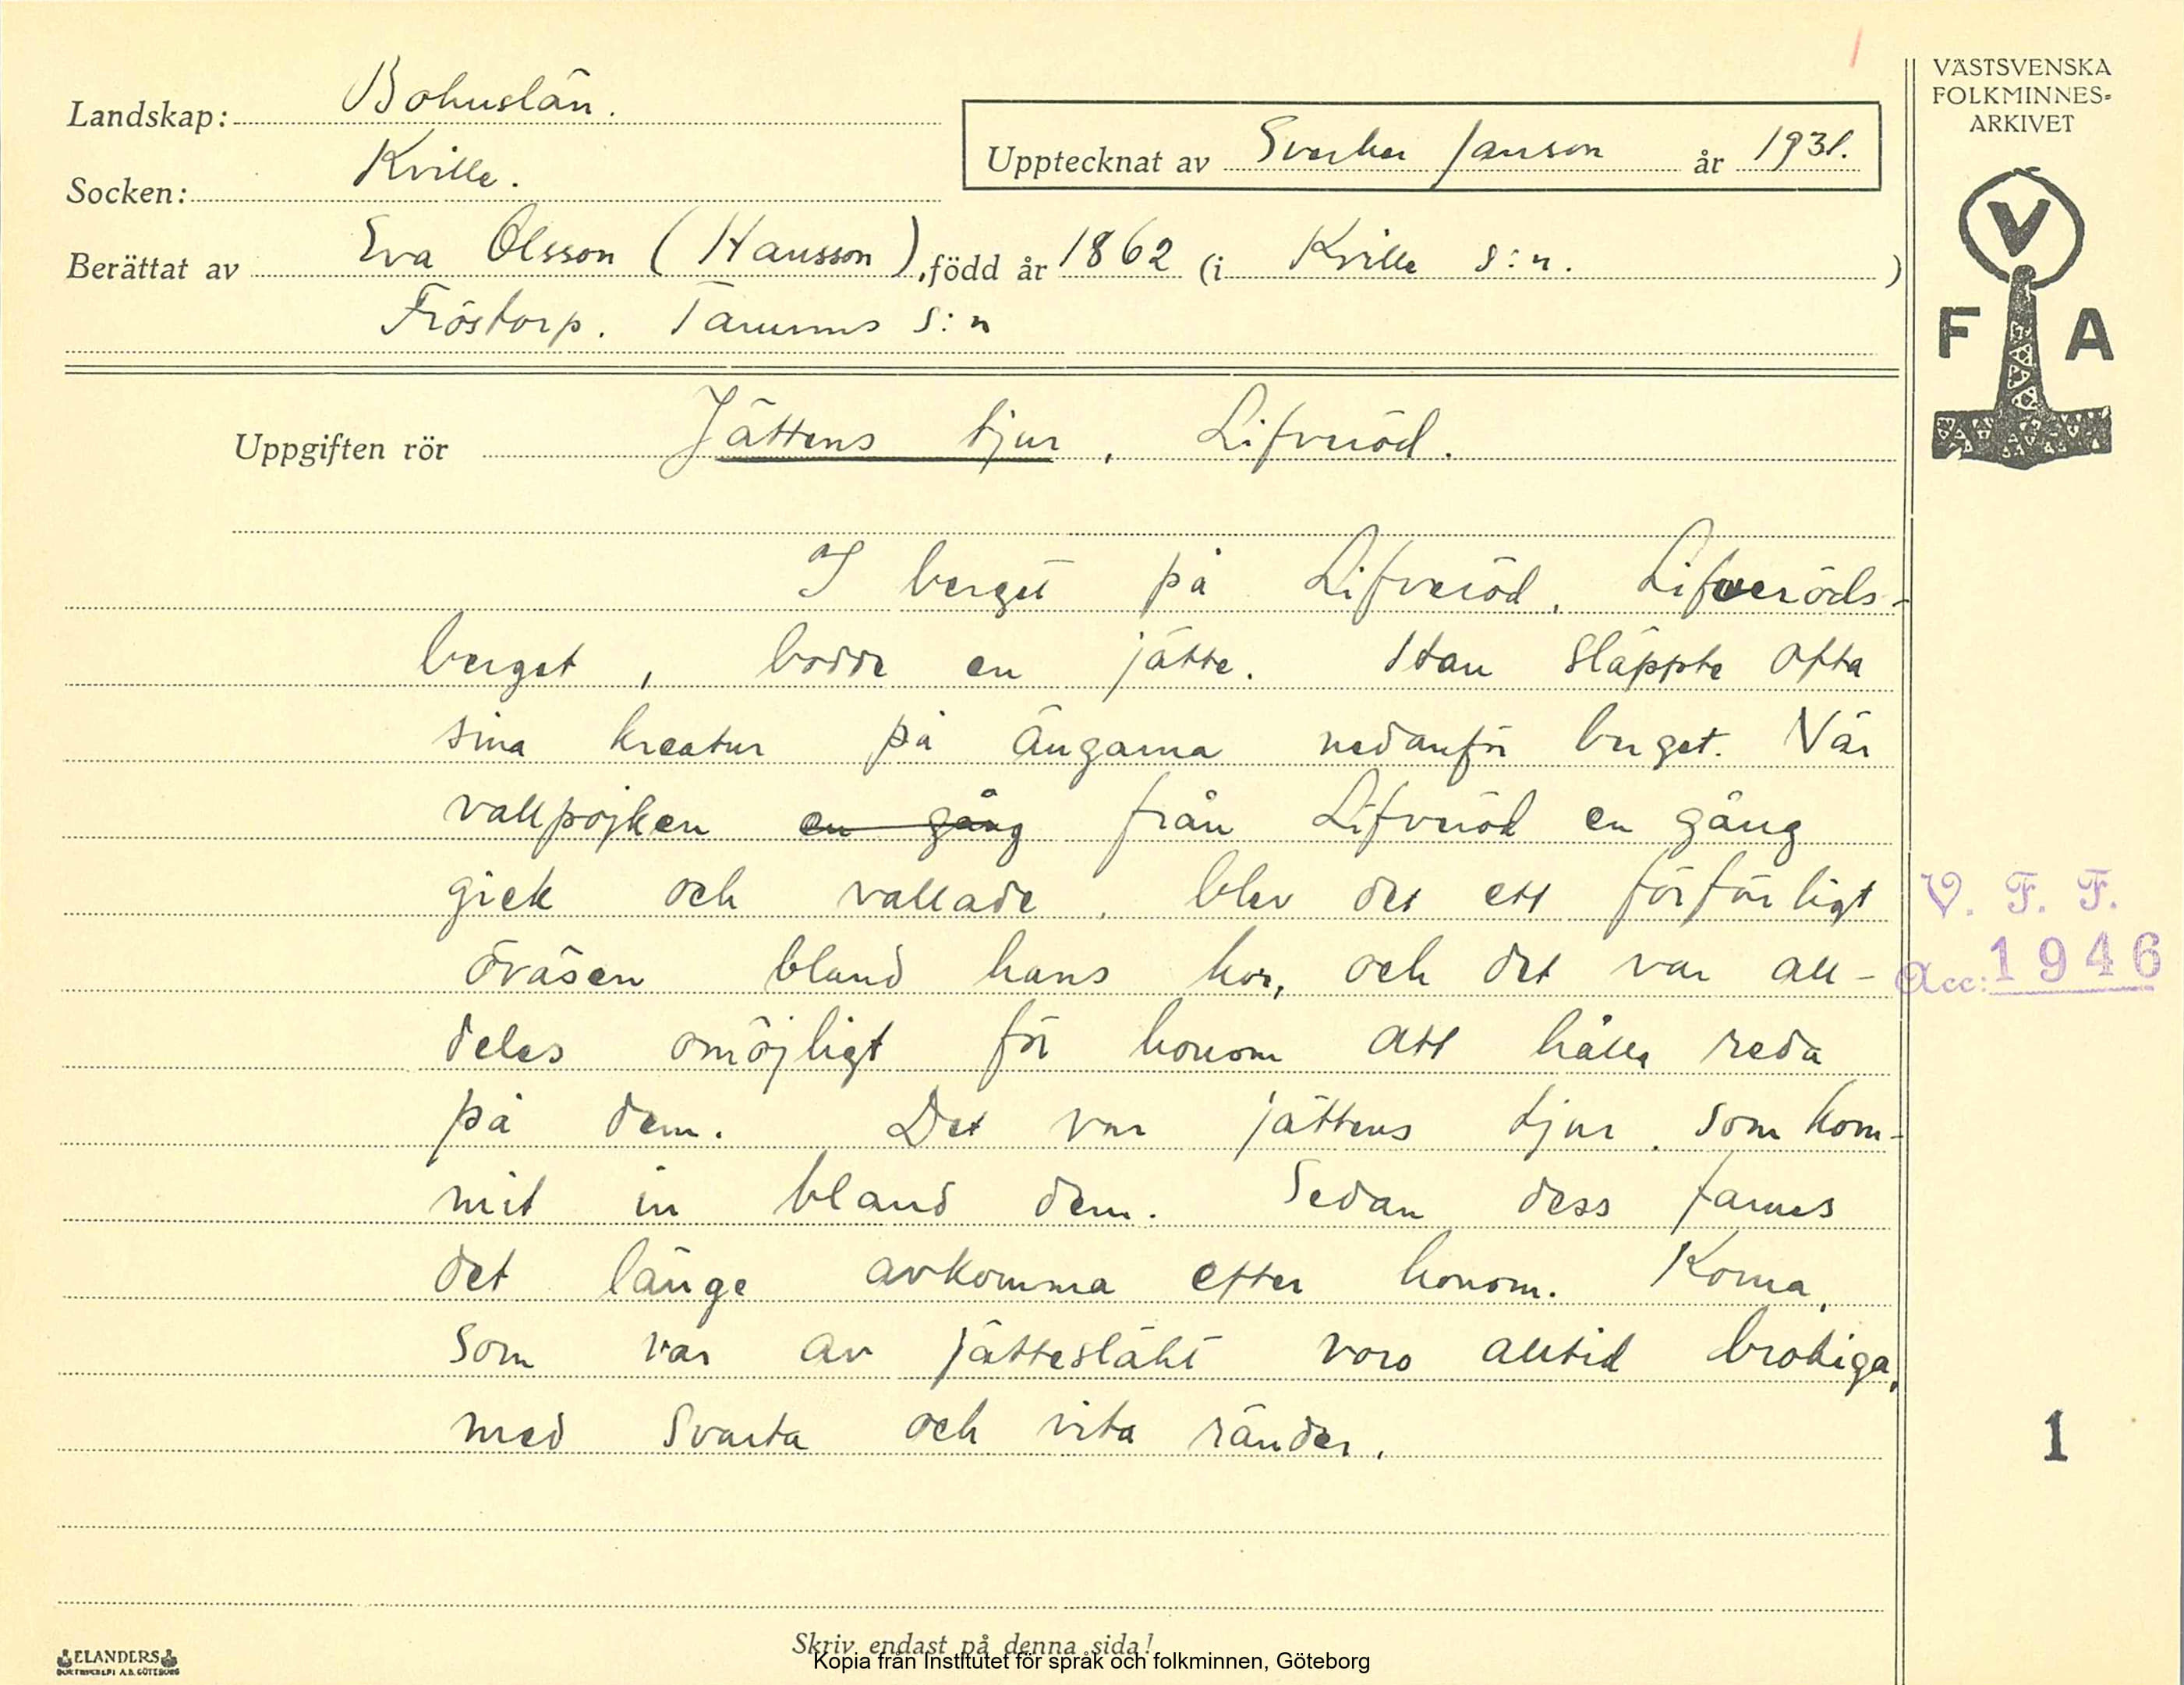 Landskap: Bohuslän.
VÄSTSVENSKA
FOLKMINNES-
ARKIVET
Upptecknat av Sverker Janson år 1931.
Socken: Kville.
V
F A
Berättat av Eva Olsson (Hansson), född år 1862 (i Kville s:n. )
Fröstorp. Tanums s:n
Uppgiften rör Jättens tjur, Lifveröd.
I berget på Lifveröd, Lifveröds-
berget, bodde en jätte. Han släppte ofta
sina kreatur på ängarna nedanför berget. När
vallpojken en gång från Lifveröd en gång
gick och vallade, blev det ett förfärligt
oväsen bland hans kor, och det var all-
deles omöjligt för honom att hålla reda
på dem. Det var jättens tjur, som kom-
mit in bland dem. Sedan dess fanns
det länge avkomma efter honom. Korna,
som var av jättesläkt voro alltid brokiga,
med svarta och vita ränder.
V. F. F.
Acc: 1946
1
Skriv endast på denna sida!
Kopia från Institutet för språk och folkminnen, Göteborg
ELANDERS
BOKTRYCKERI A.B. GÖTEBORG